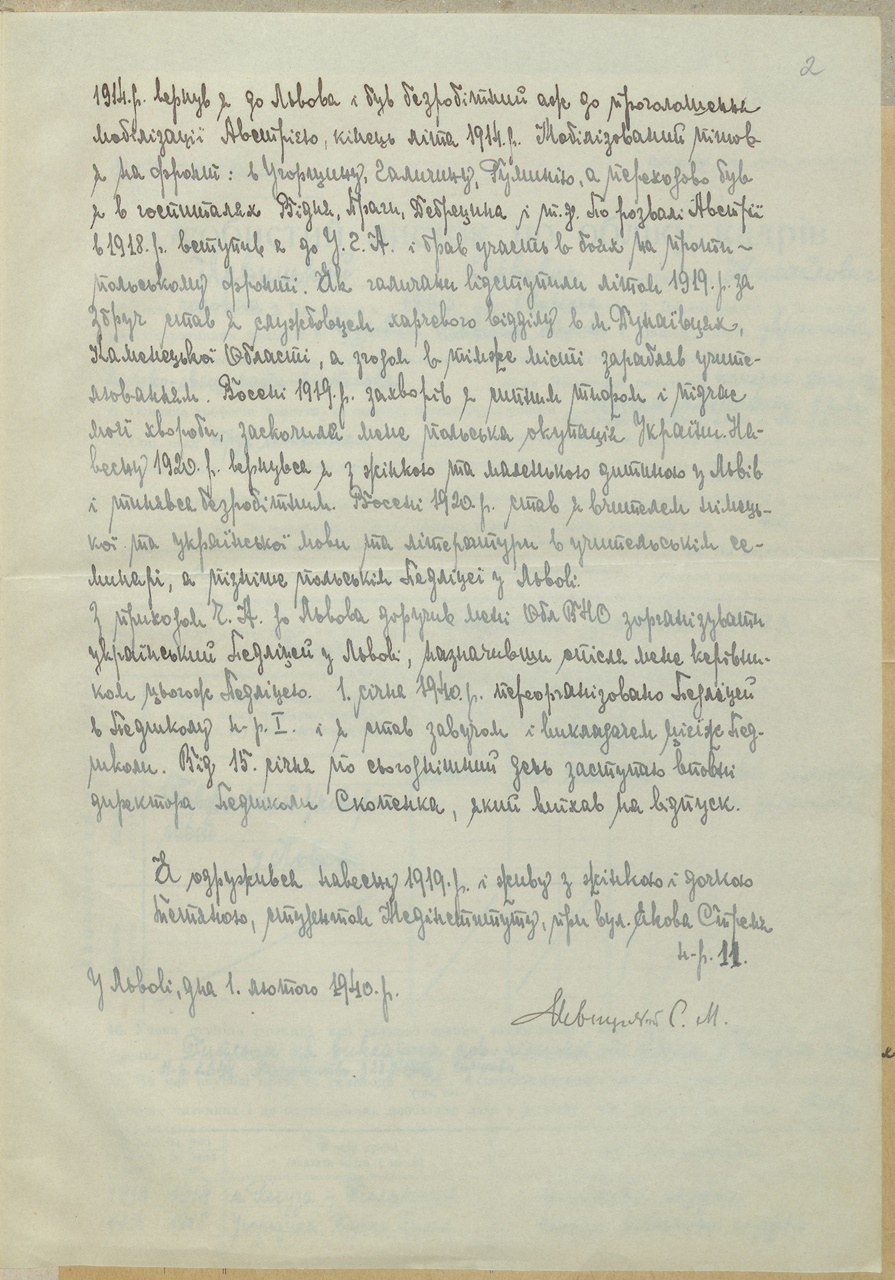 2
1914.р. вернув я до Львова і був безробітний аж до проголошення
мобілізації Австрією, кінець літа 1914.р. Мобілізований пішов
я на фронт: в Угорщину, Галичину, Руминію, а переходово був
я в госпиталях Відня, Праги, Дебрецина і т.д. По розвалі Австрії
в 1918.р. вступив я до У.Г.А. і брав участь в боях на проти-
польському фронті. Як галичани відступили літом 1919.р. за
Збруч став я службовцем харчевого відділу в м. Дунаївцях,
Каменецької Області, а згодом в тімже місті заробляв учите-
льованням. Восені 1919.р. захворів я питним тифом і підчас
моєї хвороби, заскочила мене польська окупація України. На-
весну 1920.р. вернувся я з жінкою та маленькою дитиною у Львів
і тинявся безробітним. Восені 1920.р. став я вчителем німець-
кої та української мови та літератури в учительськім се-
минарі, а пізніше польськім Педліцеї у Львові.
З приходом Ч.А. до Львова доручив мені ОблВНО зорганізувати
український Педліцей у Львові, назначивши опісля мене керівни-
ком цьогож Педліцею. 1. січня 1940.р. переорганізовано Педліцей
в Педшколу н-р. I. і я став завучом і викладачем цієїж Пед-
школи. Від 15. січня по сьогоднішний день заступаю вповні
директора Педшколи Скопенка, який виїхав на відпуск.
Я одружився навесну 1919.р. і живу з жінкою і дочкою
Тетяною, студентом Медінституту, при вул. Якова Стрепи
н-р. 11.
У Львові, дня 1. лютого 1940.р.
Левицький С. М.